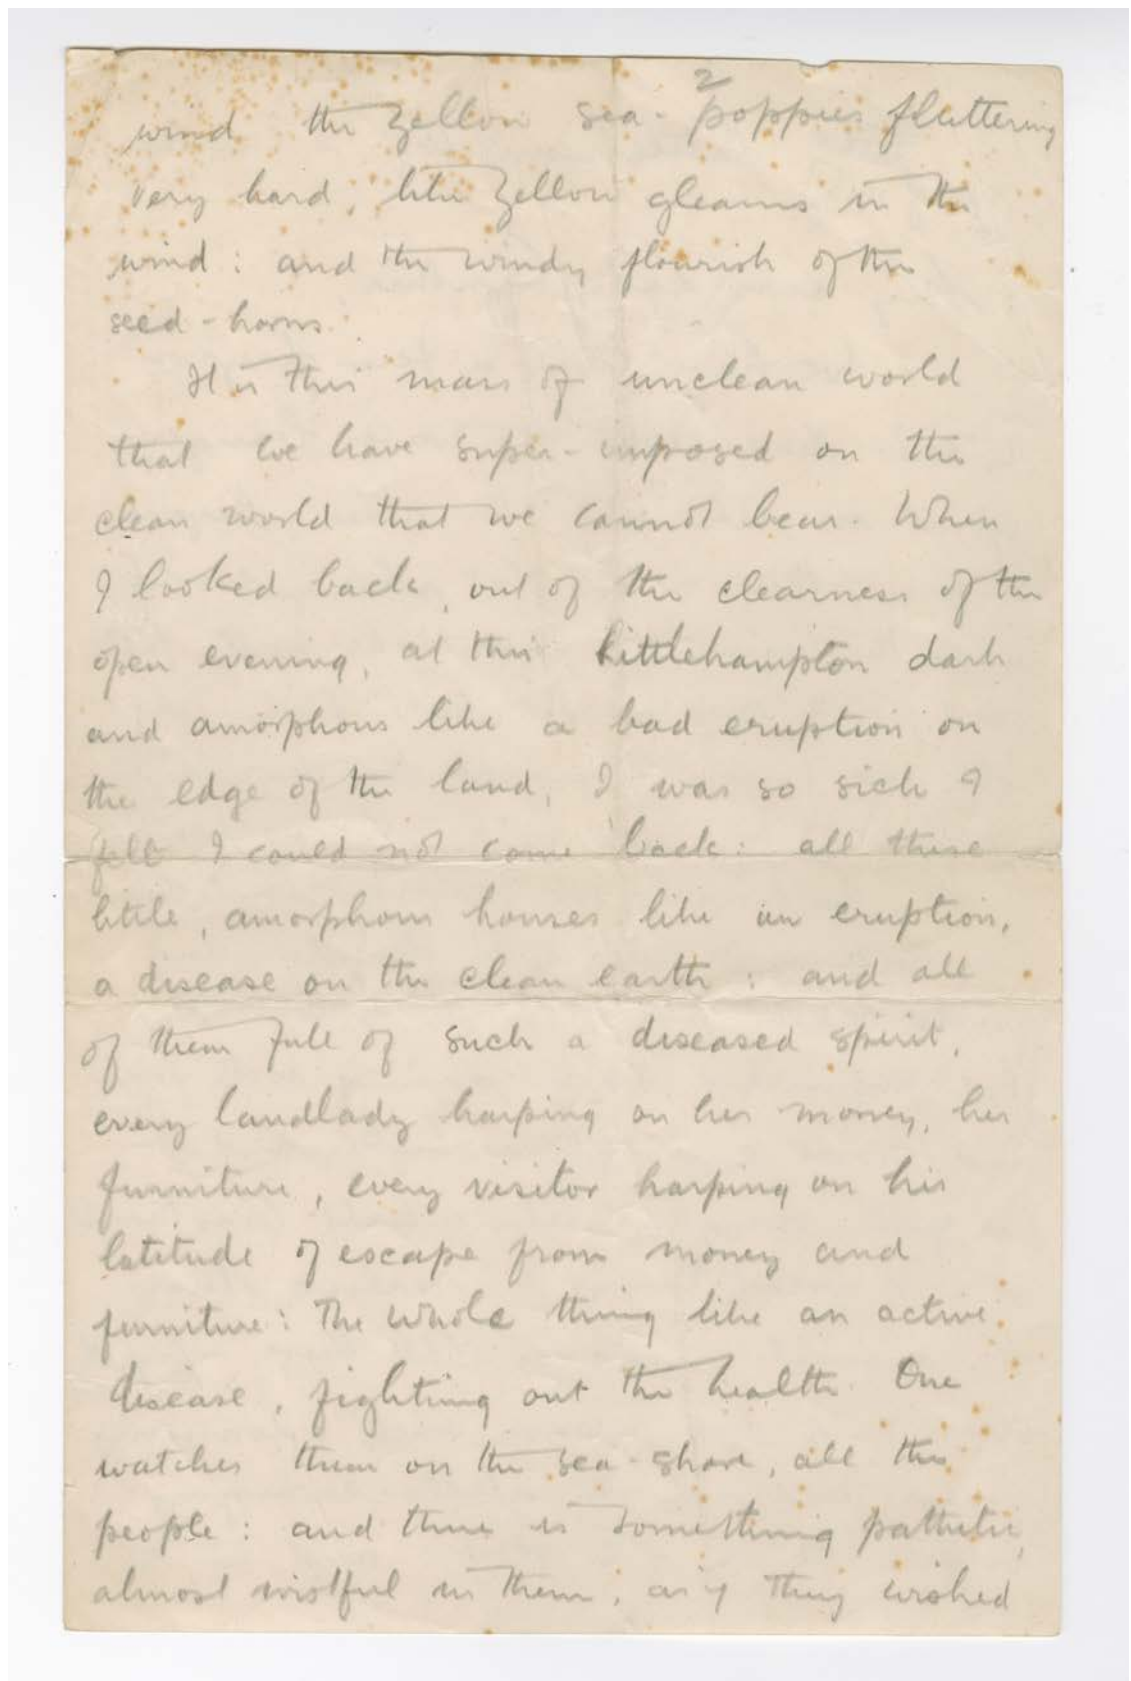 2
wind the yellow sea-poppies fluttering
very hard, like yellow gleams in the
wind: and the windy flourish of the
seed-horns.
It is this mass of unclean world
that we have super-imposed on the
clean world that we cannot bear. When
I looked back, out of the clearness of the
open evening, at this Littlehampton dark
and amorphous like a bad eruption on
the edge of the land, I was so sick I
felt I could not come back: all these
little, amorphous houses like an eruption,
a disease on the clean earth: and all
of them full of such a diseased spirit,
every landlady harping on her money, her
furniture, every visitor harping on his
latitude of escape from money and
furniture: The whole thing like an active
disease, fighting out the health. One
watches them on the sea-shore, all the
people: and there is something pathetic,
almost wistful in them, as if they wished